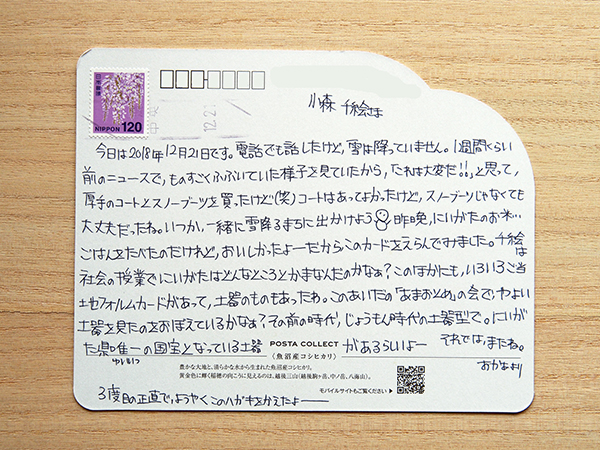 日本郵便
NIPPON 120
12.21
小森 千絵さま
今日は2018年12月21日です。電話でも話したけど、雪は降っていません。1週間くらい
前のニュースで、ものすごくふぶいていた様子を見ていたから、「これは大変だ!!」と思って、
厚手のコートとスノーブーツを買ったけど(笑)コートはあってよかったけど、スノーブーツじゃなくても
大丈夫だったね。いつか、一緒に雪降るまちに出かけよう 昨晩、にいがたのお米…
ごはんをたべたのだけれど、おいしかったよーだからこのカードをえらんでみました。千絵は
社会の授業でにいがたはどんなところとかまなんだのかなぁ?このほかにも、いろいろご当
地フォルムカードがあって、土器のものもあったね。このあいだの「あまおとめ」の会で、やよい
土器を見たのをおぼえているかなぁ?その前の時代、じょうもん時代の土器型で。にいが
た県唯一の国宝となっている土器 があるらしいよー それでは、またね。
ゆいいつ
おかあより
POSTA COLLECT
〈魚沼産コシヒカリ〉
豊かな大地と、清らかな水から生まれた魚沼産コシヒカリ。
黄金色に輝く稲穂の向こうに見えるのは、越後三山(越後駒ヶ岳、中ノ岳、八海山)。
モバイルサイトもご覧ください▶
3度目の正直で、ようやくこのハガキをかえたよー